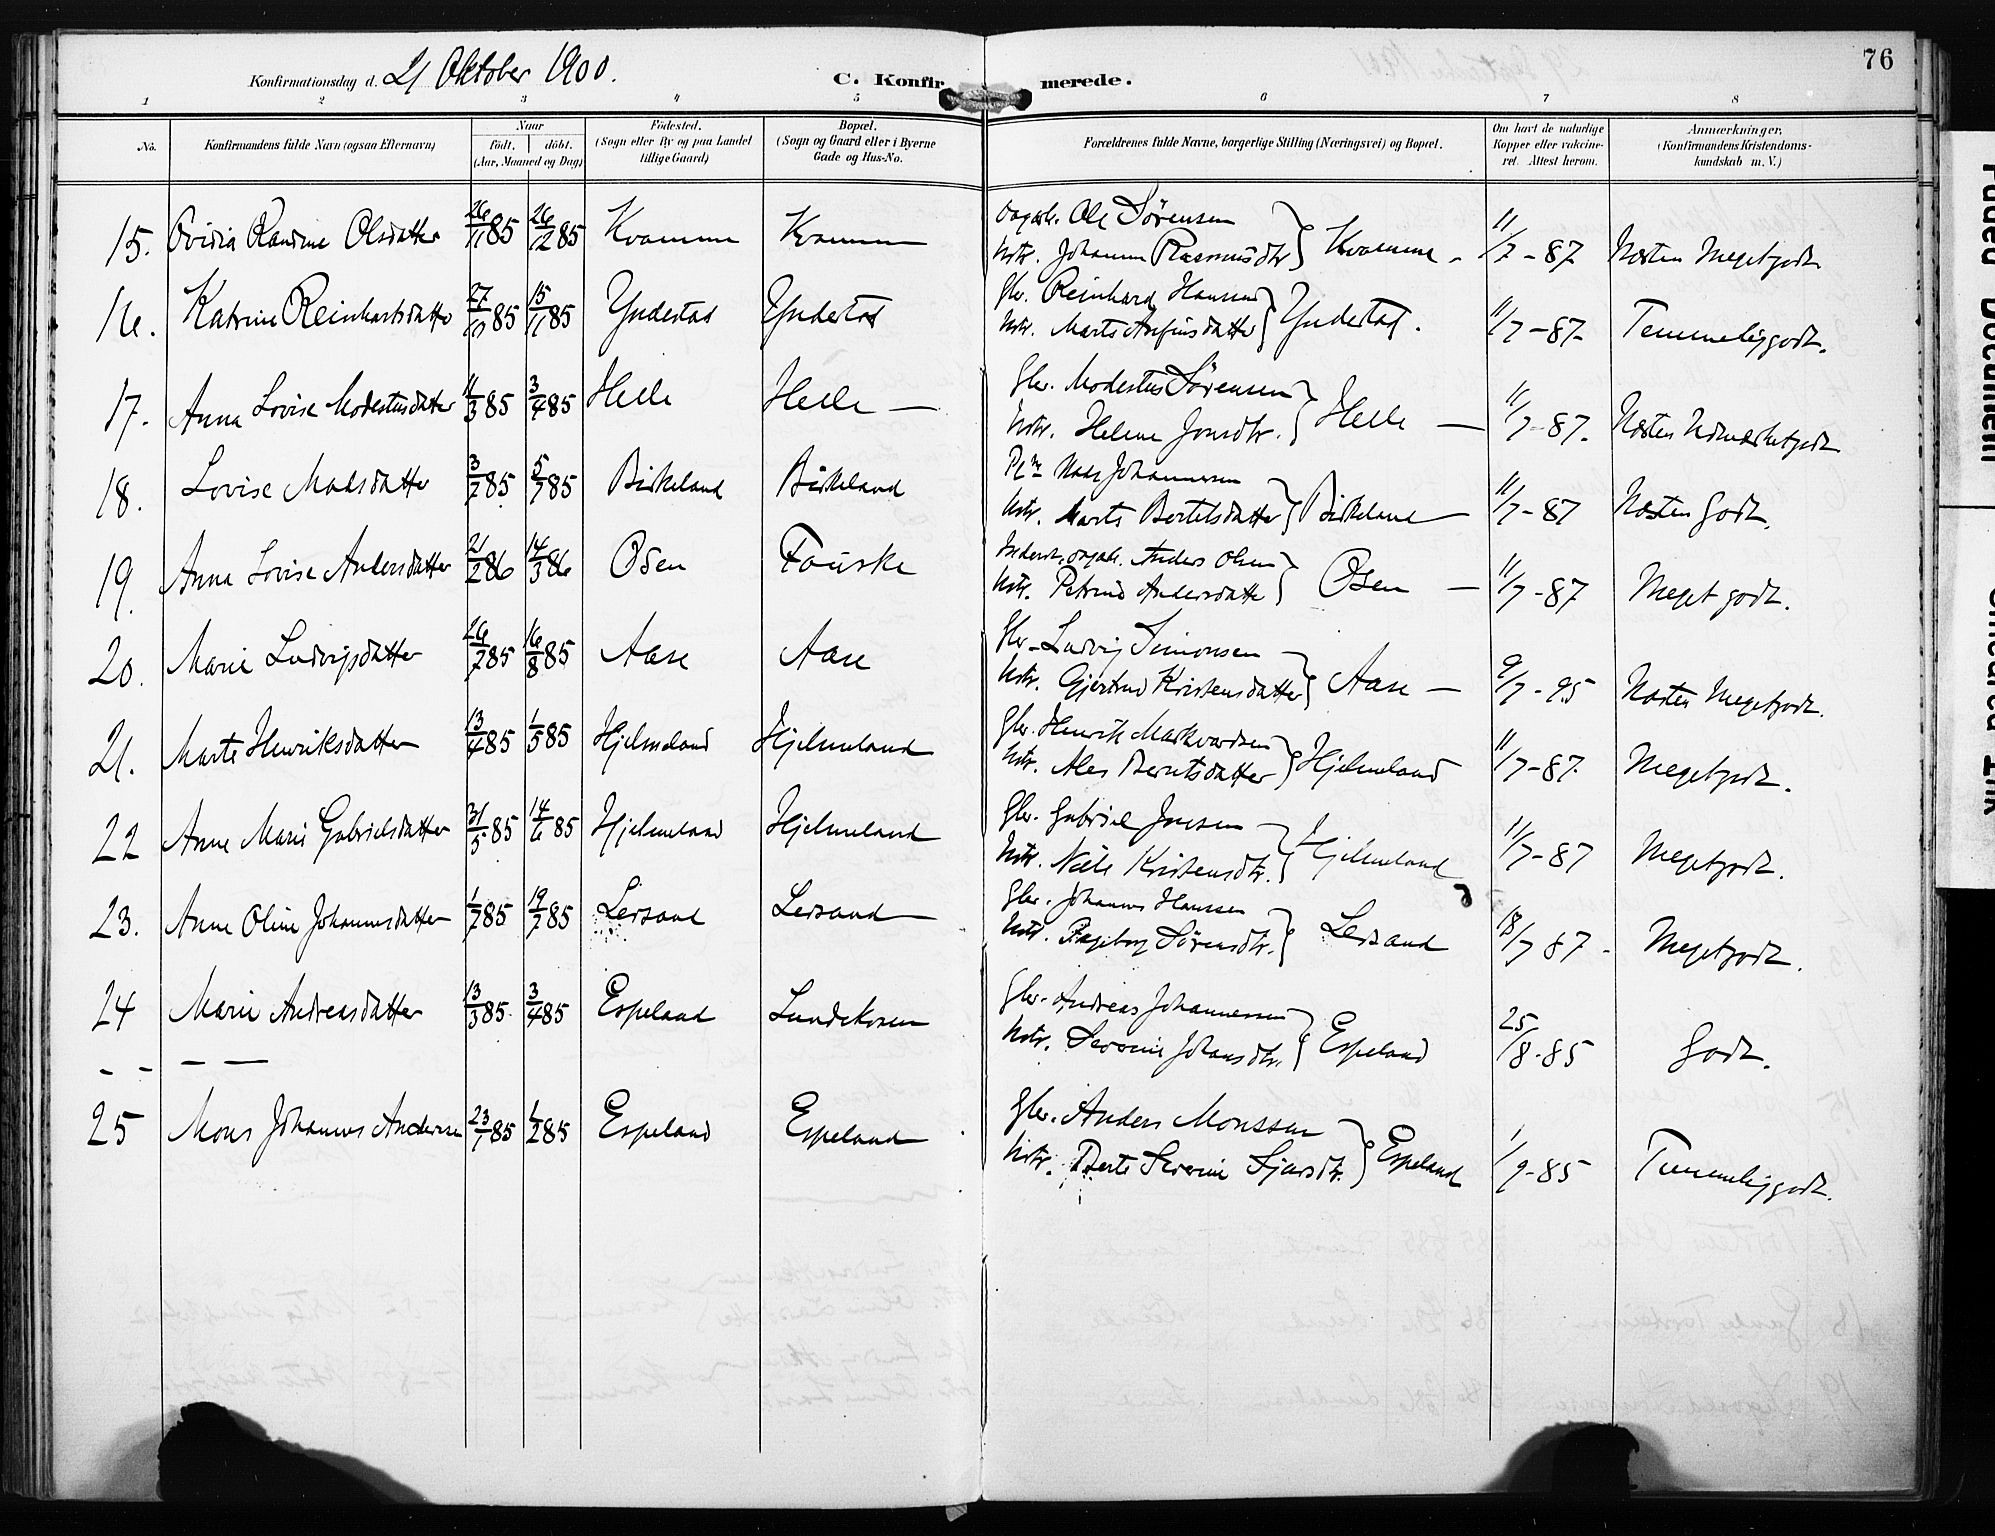 76
Konfirmationsdag d. 21 Oktober 1900.
C. Konfirmerede.
1 2 3 4 5 6 7 8
No.
Konfirmandens fulde Navn (ogsaa Efternavn)
Naar
født. døbt.
(Aar, Maaned og Dag)
Fødested.
(Sogn eller By og paa Landet
tillige Gaard)
Bopæl.
(Sogn og Gaard eller i Byerne
Gade og Hus-No.
Forældrenes fulde Navne, borgerlige Stilling (Næringsvei) og Bopæl.
Om havt de naturlige
Kopper eller vakcine-
ret. Attest herom.
Anmærkninger.
(Konfirmandens Kristendoms-
kundskab m. V.)
15. Ovidia Randine Olsdatter 26/11 85 26/12 85 Kvamme Kvamme Ole Sørensen
Hstr. Johanne Rasmusdtr } Kvamme - 11/7 - 87 Næsten Megetgodt
16. Katrine Reinhartsdatter 27/10 85 15/11 85 Yndestad Yndestad Gbr. Reinhard Hansen
Hstr. Marte Arnfinsdatter } Yndestad. 11/7 - 87 Temmeliggodt.
17. Anna Lovise Modestusdatter 11/3 85 3/4 85 Helle Helle — Gbr. Modestus Sørensen
Hstr. Helene Jonsdtr. } Helle — 11/7 - 87. Næsten Udmærketgodt
18. Lovise Madsdatter 3/7 85 5/7 85 Birkeland Birkeland Mads Johannesen
Hstr. Marte Bertelsdatter } Birkeland — 11/7 - 87 Næsten godt.
19. Anna Lovise Andersdatter 21/2 86 14/3 86 Osen Fauske Anders Olsen
Hstr. Petrine Andersdatter } Osen — 11/7 - 87 Meget godt.
20. Marie Ludvigsdatter 26/7 85 16/8 85 Aase Aase Gbr. Ludvig Simonsen
Hstr. Gjertrud Kristensdatter } Aase — 9/7 - 95 Næsten Megetgodt.
21. Marte Henriksdatter 13/4 85 1/5 85 Hjelmeland Hjelmeland Gbr. Henrik Markvardsen
Hstr. Ales Berntsdatter } Hjelmeland 11/7 - 87. Megetgodt.
22 Anne Marie Gabrielsdatter 31/5 85 14/6 85 Hjelmeland Hjelmeland Gbr. Gabriel Jonsen
Hstr. Nille Kristensdtr. } Hjelmeland 11/7 - 87 Megetgodt.
23. Anne Oline Johannesdatter 1/7 85 19/7 85 Leirand Leirand — Gbr. Johannes Hanssen
Hstr. Ingeborg Sørensdtr. } Leirand 18/7 87 - Megetgodt.
24 Marie Andreasdatter 13/3 85 3/4 85 Espeland Lundekosen Gbr. Andreas Johannessen
Hstr. Severine Johansdtr. } Espeland 25/8 - 85 Godt.
- - — —
25 Mons Johannes Andersen 23/1 85 1/2 85 Espeland Espeland Gbr. Anders Monssen
Hstr. Berte Severine Sjursdtr. } Espeland 1/9 - 85 Temmeliggodt.
Faded Document
Smeared Ink